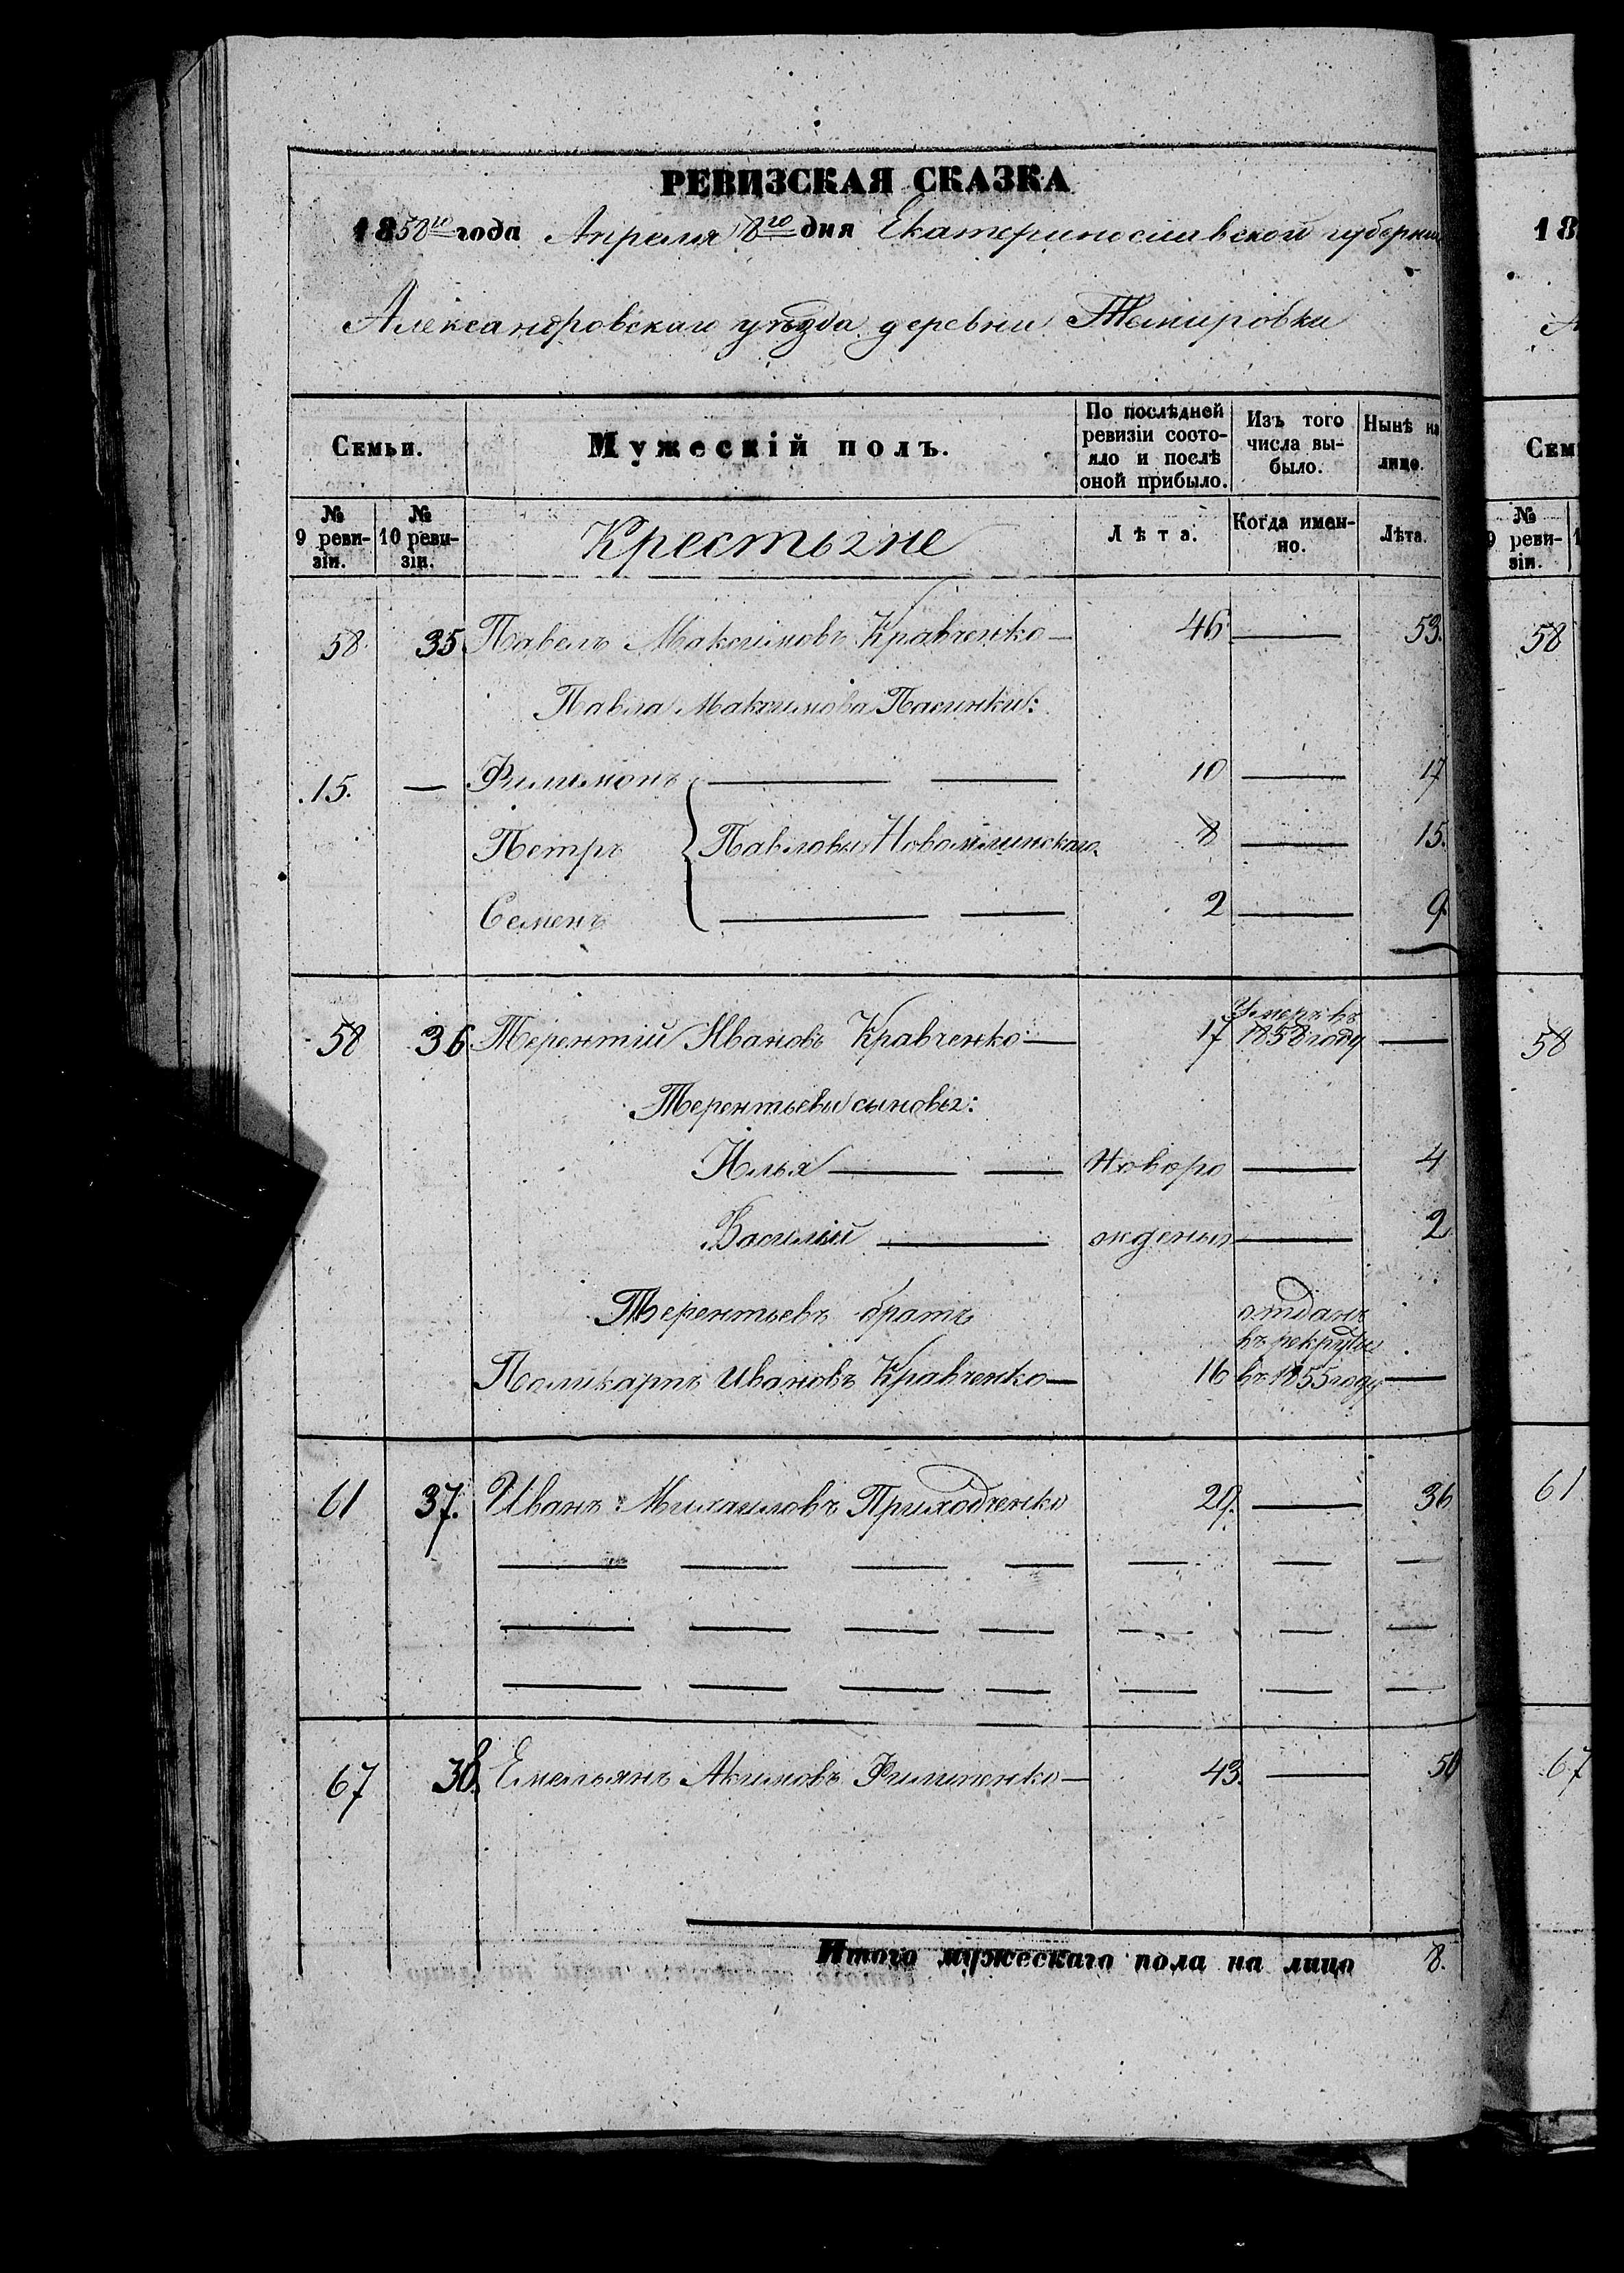 РЕВИЗСКАЯ СКАЗКА
1858го года Апреля 8го дня Екатеринославской губернии
Александровскаго уѣзда деревни Темировки
Семьи. Мужескій полъ. По послѣдней ревизіи состояло и послѣ оной прибыло. Изъ того числа выбыло. Нынѣ на лицо.
№ 9 ревизіи. № 10 ревизіи. Крестьяне Лѣта. Когда именно. Лѣта.
58 35 Павелъ Максимовъ Кравченко — 46 — 53.
Павла Максимова Пасинки:
15. — Филимонъ — — 10 — 17
Петръ Павловы Новомлинскаго 8 — 15.
Семенъ — — 2 — 9
58 36 Терентій Ивановъ Кравченко — 17 Умеръ въ 1858 году —
Терентьевы сыновья:
Илья — — Новоро — 4
Василій — ождены — 2
Терентьевъ братъ
Поликарпъ Ивановъ Кравченко — 16 отданъ въ рекруты въ 1855 году —
61 37. Иванъ Михаиловъ Приходченко 29. — 36
— — — — — — —
— — — — — — —
— — — — — — —
67 38. Емельянъ Акимовъ Филипенко — 43. — 50
Итого мужескаго пола на лицо 8.
18
Сем
№
9 реви-
зіи.
58
58
61
67